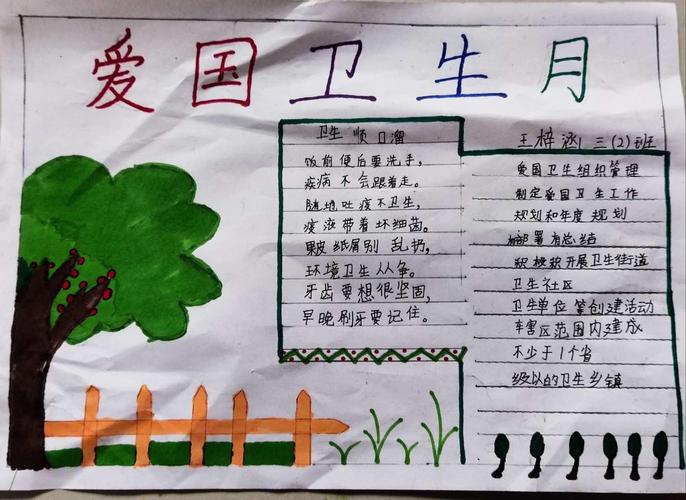 爱国卫生月
卫生 顺口溜
饭前便后要洗手,
疾病不会跟着走。
随地吐痰不卫生,
痰液带着坏细菌。
果皮纸屑别乱扔,
环境卫生人人争。
牙齿要想很坚固,
早晚刷牙要记住。
王梓涵 三(2)班
爱国卫生组织管理
制定爱国卫生工作
规划和年度规划
部署有总结
积极积开展卫生街道
卫生社区
卫生单位等创建活动
车害区范围内建成
不少于1个省
级以的卫生乡镇